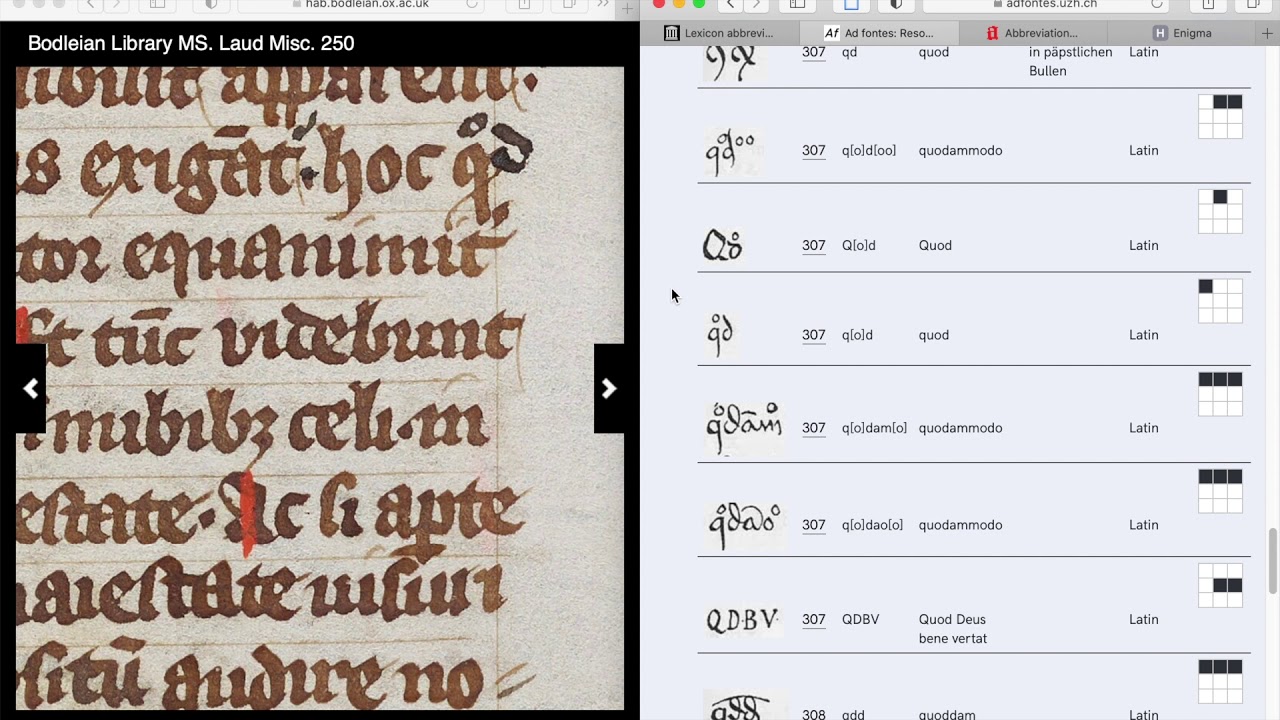 hab.bodleian.ox.ac.uk
Bodleian Library MS. Laud Misc. 250
erigāt hoc
tor equanimit
tūc videbunt
nubibꝫ celi. in
estate. Ac si apte
aiestate uisuri
situ audire no
adfontes.uzh.ch
Lexicon abbrevi...
Ad fontes: Reso...
Abbreviation...
Enigma
307 qd quod in päpstlichen Bullen Latin
307 q[o]d[oo] quodammodo Latin
307 Q[o]d Quod Latin
307 q[o]d quod Latin
307 q[o]dam[o] quodammodo Latin
307 q[o]dao[o] quodammodo Latin
QDBV 307 QDBV Quod Deus bene vertat Latin
308 qdd quoddam Latin